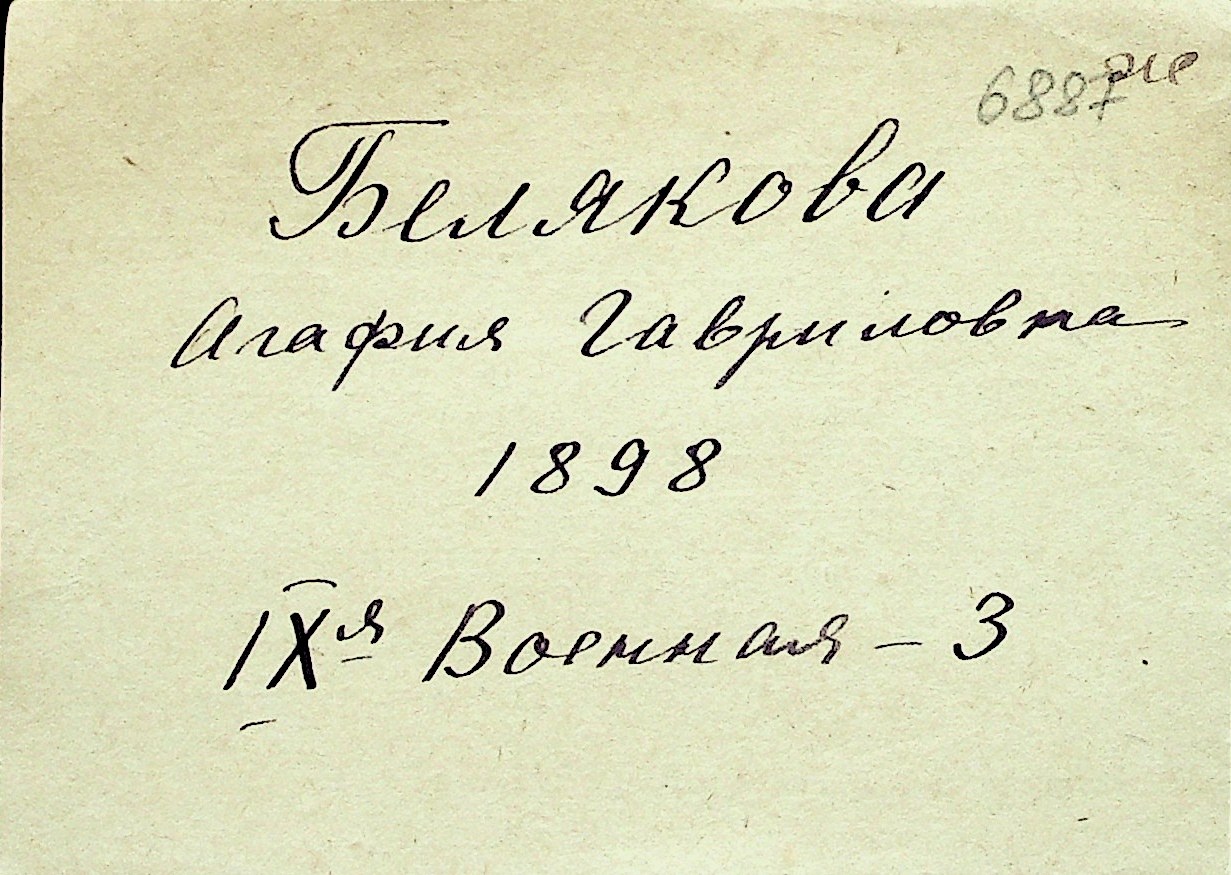 6887
Белякова
Агафия Гавриловна
1898
IXя Военная – 3